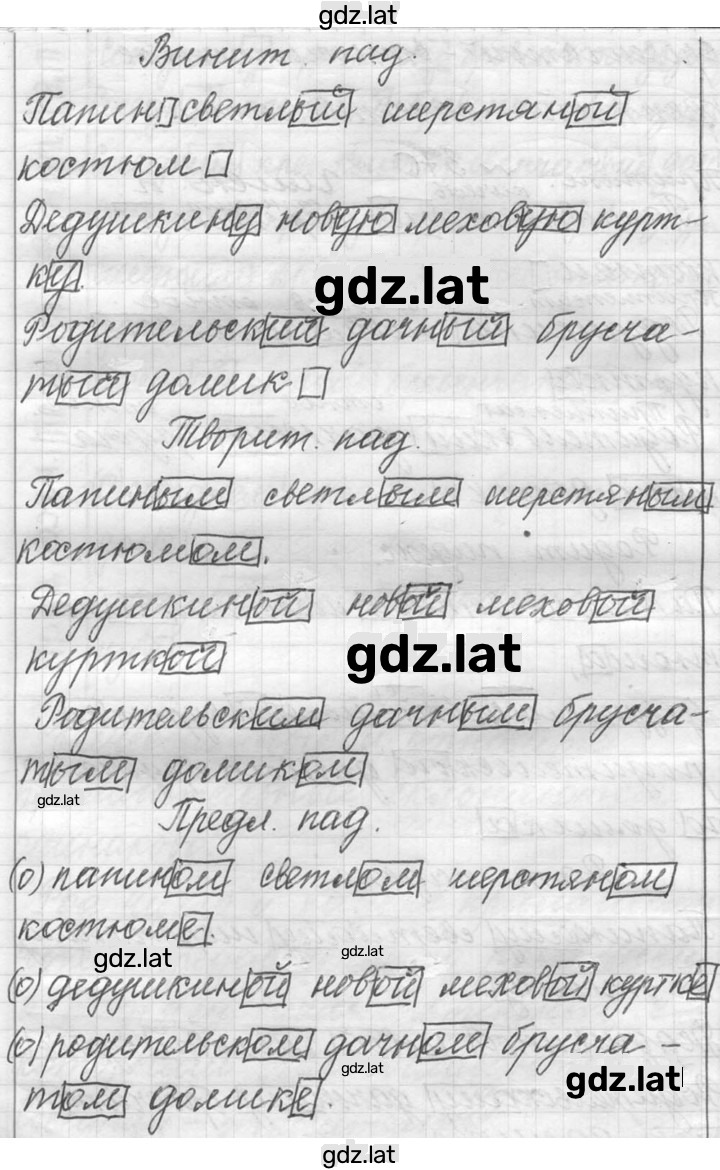 gdz.lat
Винит. пад.
Папин светлый шерстяной
костюм
Дедушкину новую меховую курт-
ку.
gdz.lat
Родительский дачный брусча-
тый домик
Творит. пад.
Папиным светлым шерстяным
костюмом.
Дедушкиной новой меховой
gdz.lat
курткой
Родительским дачным брусча-
тым домиком
gdz.lat
Предл. пад.
(о) папином светлом шерстяном
костюме.
gdz.lat
gdz.lat
(о) дедушкиной новой меховой куртке
(о) родительском дачном брусча-
gdz.lat
том домике.
gdz.lat
gdz.lat